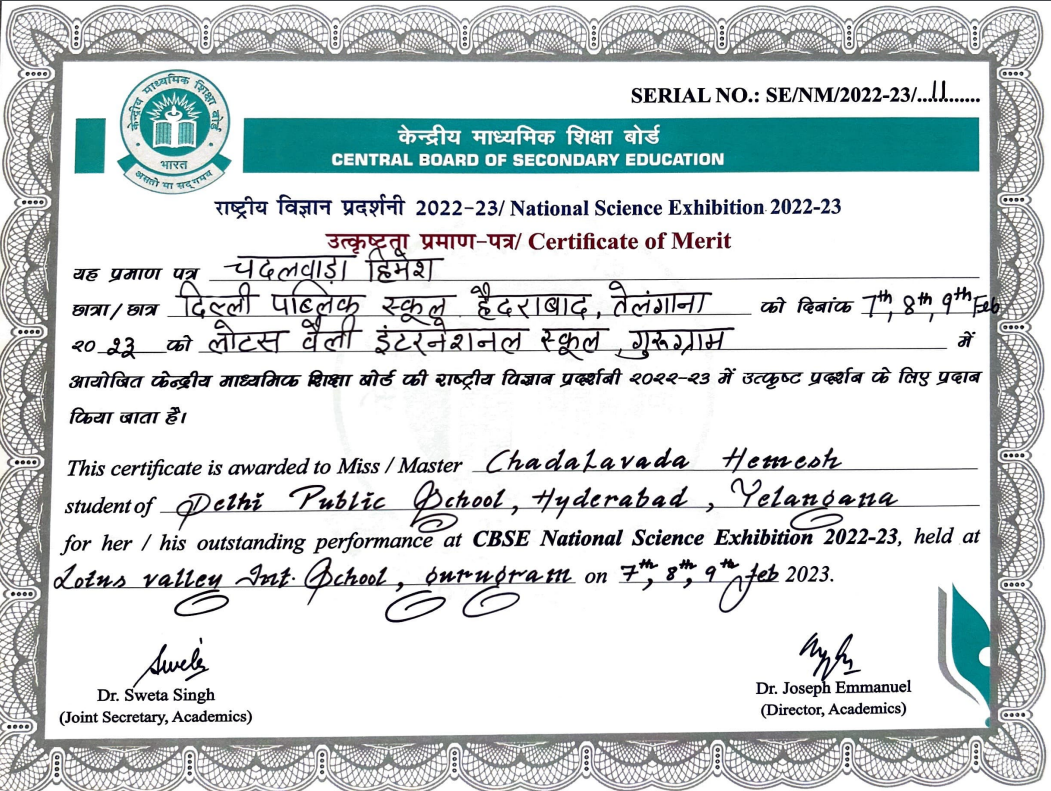 SERIAL NO.: SE/NM/2022-23/...11......
केन्द्रीय माध्यमिक शिक्षा बोर्ड
भारत
असतो मा सद्गमय
केन्द्रीय माध्यमिक शिक्षा बोर्ड
CENTRAL BOARD OF SECONDARY EDUCATION
राष्ट्रीय विज्ञान प्रदर्शनी 2022-23/ National Science Exhibition 2022-23
उत्कृष्टता प्रमाण-पत्र/ Certificate of Merit
यह प्रमाण पत्र चदलवाड़ा हिमेश
छात्रा / छात्र दिल्ली पब्लिक स्कूल हैदराबाद, तेलंगाना को दिनांक 7th, 8th, 9th Feb
२० 23 को लोटस वैली इंटरनेशनल स्कूल, गुरूग्राम में
आयोजित केन्द्रीय माध्यमिक शिक्षा बोर्ड की राष्ट्रीय विज्ञान प्रदर्शनी २०२२-२३ में उत्कृष्ट प्रदर्शन के लिए प्रदान
किया जाता है।
This certificate is awarded to Miss / Master Chadalavada Hemesh
student of Delhi Public School, Hyderabad, Telangana
for her / his outstanding performance at CBSE National Science Exhibition 2022-23, held at
Lotus valley Int. School, gurugram on 7th, 8th, 9th feb 2023.
Dr. Sweta Singh
(Joint Secretary, Academics)
Dr. Joseph Emmanuel
(Director, Academics)